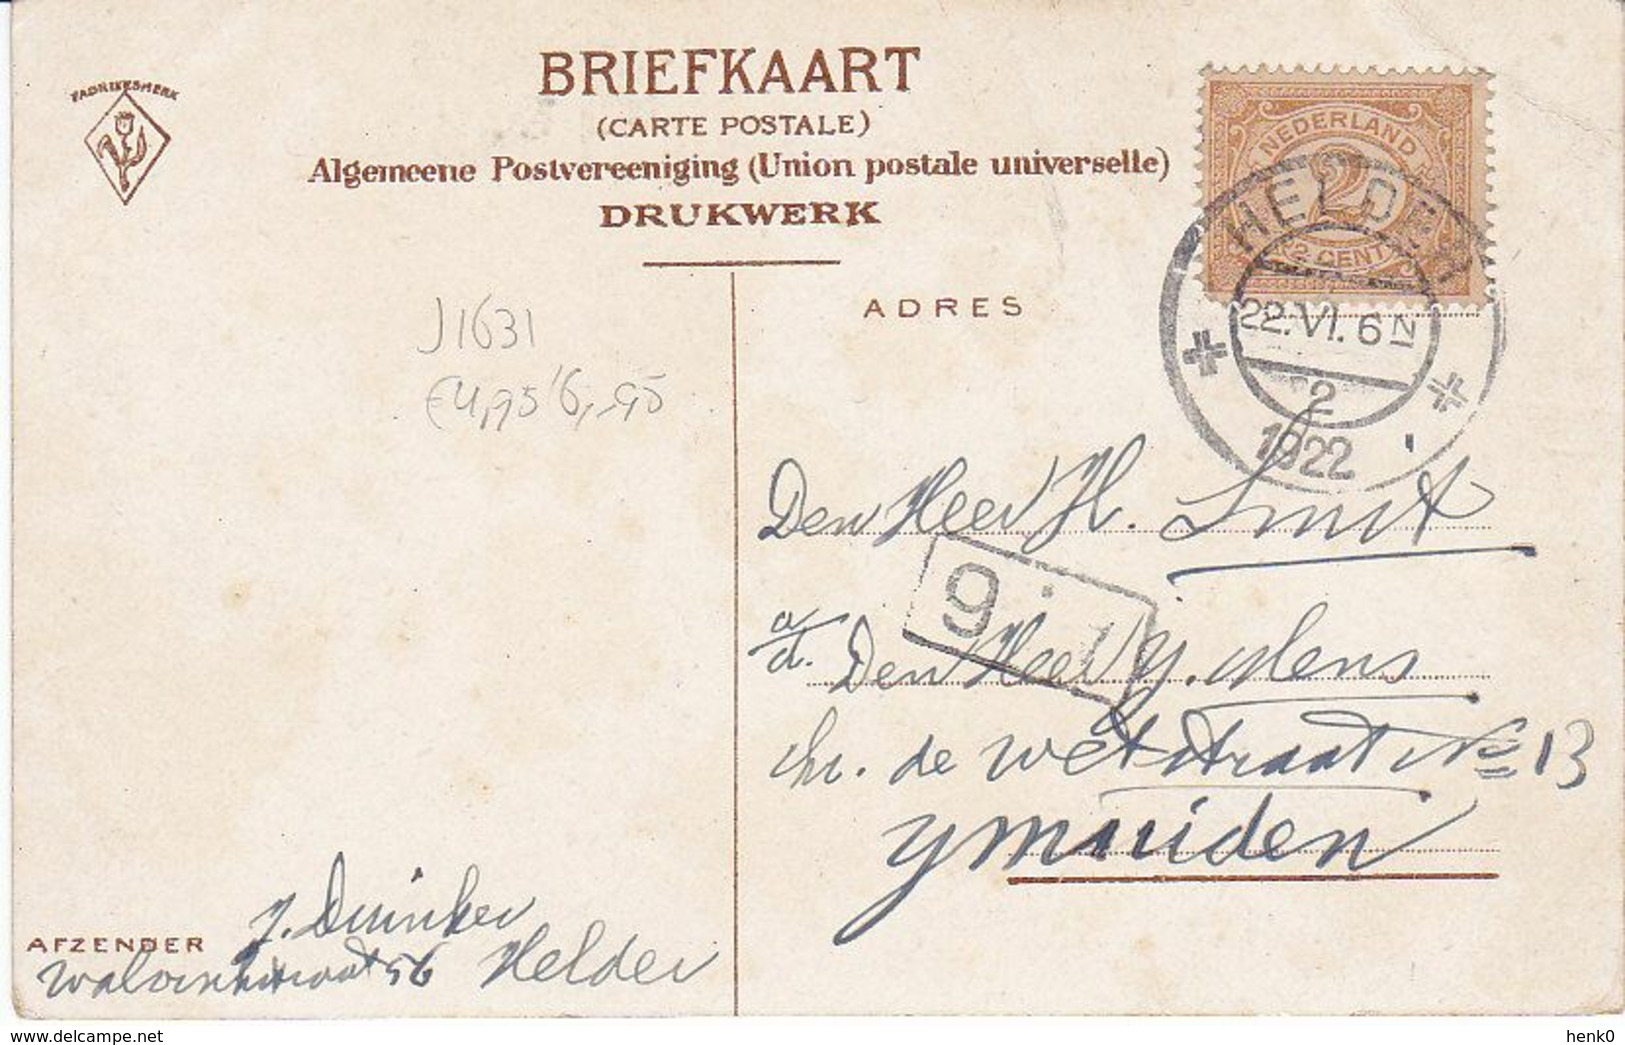 FABRIEKSMERK
BRIEFKAART
(CARTE POSTALE)
Algemeene Postvereeniging (Union postale universelle)
DRUKWERK
NEDERLAND
2
2 CENT
HELDER
22.VI. 6 N
2
1922
ADRES
J1631
€4,95 6,-
Den Heer H. Smit
9
a/d. Den Heer Y.
Chr. de Wetstraat No 13
Ymuiden
J. Duinker
AFZENDER
56 Helder
delcampe.net
henk0